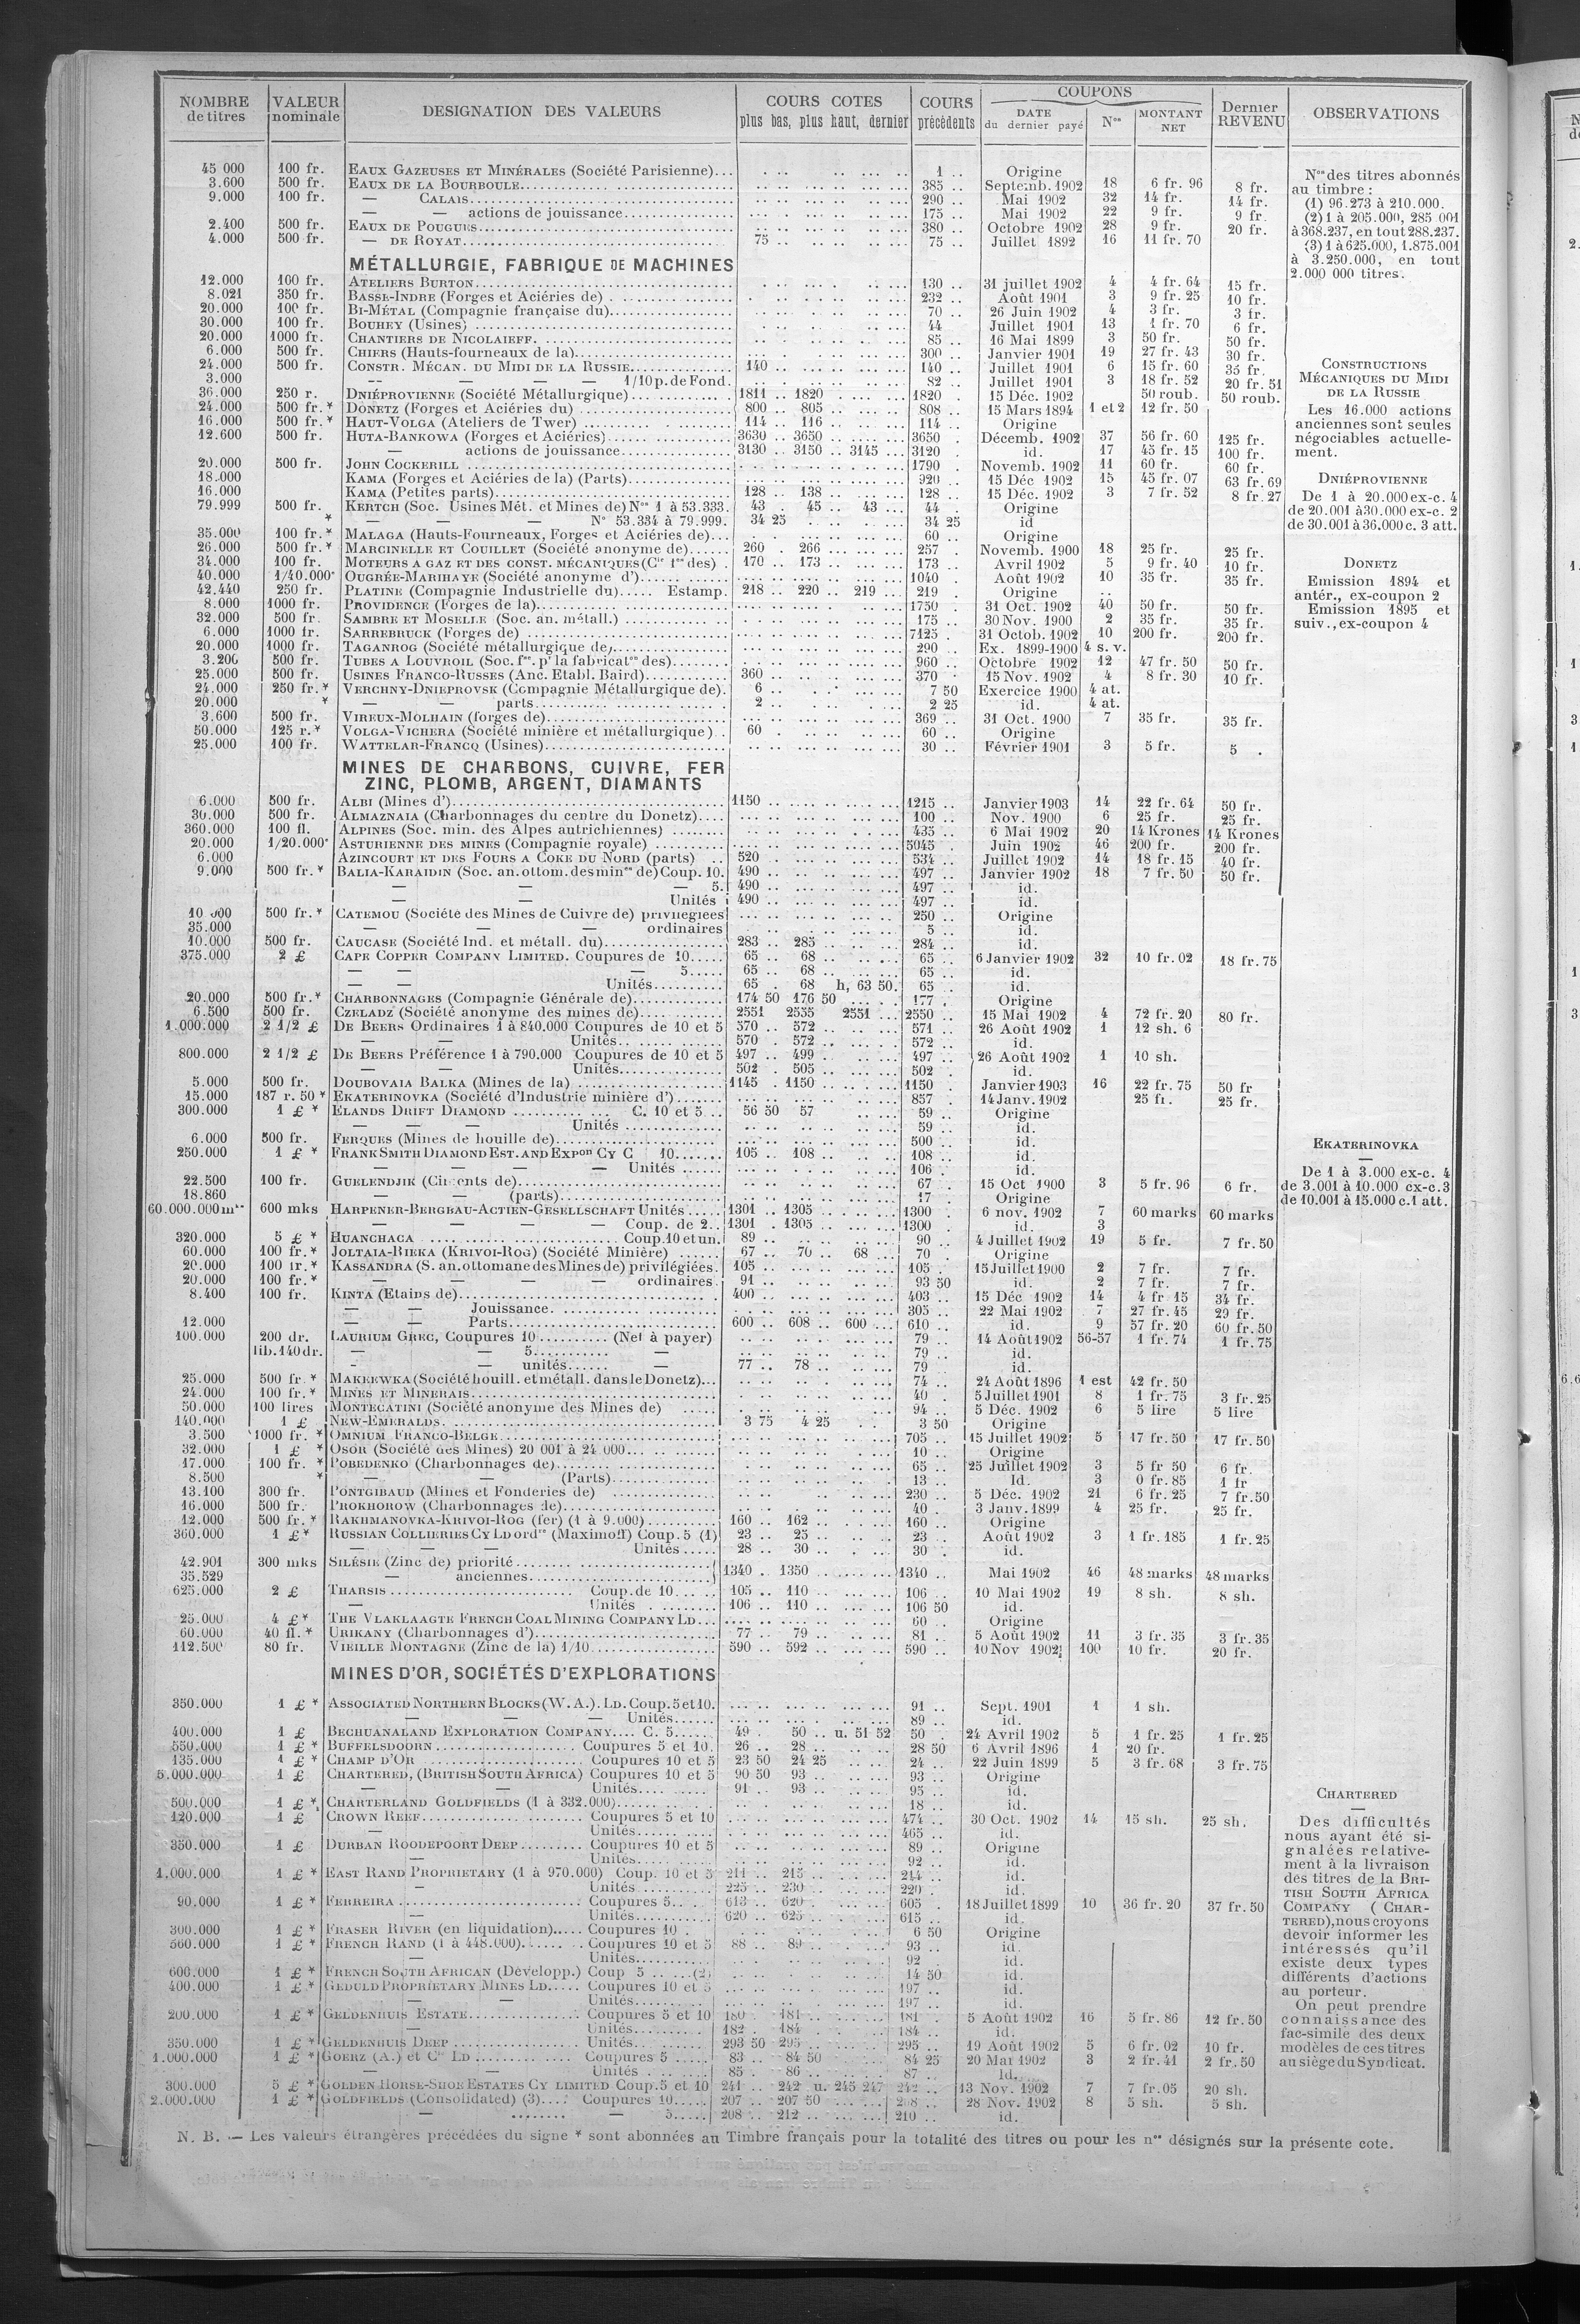 NOMBRE de titres | VALEUR nominale | DESIGNATION DES VALEURS | COURS COTES plus bas, plus haut, dernier | COURS précédents | COUPONS DATE du dernier payé | Nos | MONTANT NET | Dernier REVENU | OBSERVATIONS
45 000 100 fr. EAUX GAZEUSES ET MINÉRALES (Société Parisienne)... 1 .. Origine
3.600 500 fr. EAUX DE LA BOURBOULE... 385 .. Septemb. 1902 18 6 fr. 96 8 fr.
9.000 100 fr. — CALAIS... 290 .. Mai 1902 32 14 fr. 14 fr.
— — actions de jouissance... 175 .. Mai 1902 22 9 fr. 9 fr.
2.400 500 fr. EAUX DE POUGUES... 380 .. Octobre 1902 28 9 fr. 20 fr.
4.000 500 fr. — DE ROYAT... 75 .. 75 .. Juillet 1892 16 11 fr. 70
MÉTALLURGIE, FABRIQUE DE MACHINES
12.000 100 fr. ATELIERS BURTON... 130 .. 31 juillet 1902 4 4 fr. 64 15 fr.
8.021 350 fr. BASSE-INDRE (Forges et Aciéries de)... 232 .. Août 1901 3 9 fr. 25 10 fr.
20.000 100 fr. BI-MÉTAL (Compagnie française du)... 70 .. 26 Juin 1902 4 3 fr. 3 fr.
30.000 100 fr. BOUHEY (Usines)... 44 Juillet 1901 13 1 fr. 70 6 fr.
20.000 1000 fr. CHANTIERS DE NICOLAIEFF... 85 .. 16 Mai 1899 3 50 fr. 50 fr.
6.000 500 fr. CHIERS (Hauts-fourneaux de la)... 300 .. Janvier 1901 19 27 fr. 43 30 fr.
24.000 500 fr. CONSTR. MÉCAN. DU MIDI DE LA RUSSIE... 140 .. 140 .. Juillet 1901 6 15 fr. 60 35 fr.
3.000 -- — — — 1/10 p. de Fond. 82 .. Juillet 1901 3 18 fr. 52 20 fr. 51
36.000 250 r. DNIÉPROVIENNE (Société Métallurgique)... 1811 .. 1820 1820 . 15 Déc. 1902 50 roub. 50 roub.
24.000 500 fr. * DONETZ (Forges et Aciéries du)... 800 .. 805 .. 808 .. 15 Mars 1894 1 et 2 12 fr. 50
16.000 500 fr. * HAUT-VOLGA (Ateliers de Twer)... 114 .. 116 .. 114 .. Origine
12.600 500 fr. HUTA-BANKOWA (Forges et Aciéries)... 3630 .. 3650 .. 3650 . Décemb. 1902 37 56 fr. 60 125 fr.
— actions de jouissance... 3130 .. 3150 .. 3145 ... 3120 . id. 17 45 fr. 15 100 fr.
20.000 500 fr. JOHN COCKERILL... 1790 .. Novemb. 1902 11 60 fr. 60 fr.
18.000 KAMA (Forges et Aciéries de la) (Parts)... 920 .. 15 Déc 1902 15 45 fr. 07 63 fr. 69
16.000 KAMA (Petites parts)... 128 .. 138 .. 128 .. 15 Déc. 1902 3 7 fr. 52 8 fr. 27
79.999 500 fr. KERTCH (Soc. Usines Mét. et Mines de) Nos 1 à 53.333. 43 . 45 .. 43 ... 44 . Origine
* — — — N° 53.334 à 79.999. 34 25 34 25 id
35.000 100 fr. * MALAGA (Hauts-Fourneaux, Forges et Aciéries de)... 60 .. Origine
26.000 500 fr. * MARCINELLE ET COUILLET (Société anonyme de)... 260 . 266 ... 257 . Novemb. 1900 18 25 fr. 25 fr.
34.000 100 fr. MOTEURS A GAZ ET DES CONST. MÉCANIQUES (Cie fse des) . 170 .. 173 ... 173 .. Avril 1902 5 9 fr. 40 10 fr.
40.000 1/40.000e OUGRÉE-MARIHAYE (Société anonyme d')... 1040 . Août 1902 10 35 fr. 35 fr.
42.440 250 fr. PLATINE (Compagnie Industrielle du)..... Estamp. 218 .. 220 .. 219 ... 219 . Origine
8.000 1000 fr. PROVIDENCE (Forges de la)... 1750 . 31 Oct. 1902 40 50 fr. 50 fr.
32.000 500 fr. SAMBRE ET MOSELLE (Soc. an. métall.)... 175 .. 30 Nov. 1900 2 35 fr. 35 fr.
6.000 1000 fr. SARREBRUCK (Forges de)... 7125 . 31 Octob. 1902 10 200 fr. 200 fr.
20.000 1000 fr. TAGANROG (Société métallurgique de)... 290 .. Ex. 1899-1900 4 s. v.
3.200 500 fr. TUBES A LOUVROIL (Soc. fse. pr la fabricaton des)... 960 .. Octobre 1902 12 47 fr. 50 50 fr.
25.000 500 fr. USINES FRANCO-RUSSES (Anc. Etabl. Baird)... 360 .. 370 . 15 Nov. 1902 4 8 fr. 30 10 fr.
24.000 250 fr. * VERCHNY-DNIEPROVSK (Compagnie Métallurgique de). 6 .. 7 50 Exercice 1900 4 at.
20.000 * — — parts... 2 .. 2 25 id. 4 at.
3.600 500 fr. VIREUX-MOLHAIN (forges de)... 369 .. 31 Oct. 1900 7 35 fr. 35 fr.
50.000 125 r. * VOLGA-VICHERA (Société minière et métallurgique) . 60 . 60 .. Origine
25.000 100 fr. WATTELAR-FRANCQ (Usines)... 30 .. Février 1901 3 5 fr. 5 .
MINES DE CHARBONS, CUIVRE, FER
ZINC, PLOMB, ARGENT, DIAMANTS
6.000 500 fr. ALBI (Mines d')... 1150 .. 1215 .. Janvier 1903 14 22 fr. 64 50 fr.
30.000 500 fr. ALMAZNAIA (Charbonnages du centre du Donetz).... 100 .. Nov. 1900 6 25 fr. 25 fr.
360.000 100 fl. ALPINES (Soc. min. des Alpes autrichiennes)... 435 .. 6 Mai 1902 20 14 Krones 14 Krones
20.000 1/20.000e ASTURIENNE DES MINES (Compagnie royale)... 5045 . Juin 1902 46 200 fr. 200 fr.
6.000 AZINCOURT ET DES FOURS A COKE DU NORD (parts) .. 520 .. 534 .. Juillet 1902 14 18 fr. 15 40 fr.
9.000 500 fr. * BALIA-KARAIDIN (Soc. an. ottom. des mines de) Coup. 10. 490 .. 497 .. Janvier 1902 18 7 fr. 50 50 fr.
— — — 5. 490 .. 497 .. id.
— — Unités 490 .. 497 .. id.
10 000 500 fr. * CATEMOU (Société des Mines de Cuivre de) privilégiées 250 .. Origine
35.000 — — — ordinaires 5 .. id.
10.000 500 fr. CAUCASE (Société Ind. et métall. du)... 283 .. 285 284 .. id.
375.000 2 £ CAPE COPPER COMPANY LIMITED. Coupures de 10..... 65 .. 68 .. 65 .. 6 Janvier 1902 32 10 fr. 02 18 fr. 75
— — — 5..... 65 .. 68 .. 65 .. id.
— — Unités... 65 . 68 h, 63 50. 65 .. id.
20.000 500 fr. * CHARBONNAGES (Compagnie Générale de)... 174 50 176 50 177 . Origine
6.500 500 fr. CZELADZ (Société anonyme des mines de)... 2551 2555 2551 ... 2550 .. 15 Mai 1902 4 72 fr. 20 80 fr.
1.000.000 2 1/2 £ DE BEERS Ordinaires 1 à 840.000 Coupures de 10 et 5 570 .. 572 .. 571 .. 26 Août 1902 1 12 sh. 6
— — Unités... 570 . 572 .. 572 .. id.
800.000 2 1/2 £ DE BEERS Préférence 1 à 790.000 Coupures de 10 et 5 497 .. 499 .. 497 .. 26 Août 1902 1 10 sh.
— — Unités... 502 . 505 .. 502 . id.
5.000 500 fr. DOUBOVAIA BALKA (Mines de la)... 1145 . 1150 .. 1150 . Janvier 1903 16 22 fr. 75 50 fr
15.000 187 r. 50 * EKATERINOVKA (Société d'Industrie minière d')... 857 . 14 Janv. 1902 25 fr. 25 fr.
300.000 1 £ * ELANDS DRIFT DIAMOND... C. 10 et 5 .. 56 50 57 59 .. Origine
— — — Unités... 59 .. id.
6.000 500 fr. FERQUES (Mines de houille de)... 500 .. id.
250.000 1 £ * FRANK SMITH DIAMOND EST. AND EXPon CY C 10... 105 .. 108 .. 108 .. id.
— — — — Unités... 106 . id.
22.500 100 fr. GUELENDJIK (Ciments de)... 67 . 15 Oct 1900 3 5 fr. 96 6 fr.
18.860 — — (parts)... 17 . Origine
60.000.000 mks 600 mks HARPENER-BERGBAU-ACTIEN-GESELLSCHAFT Unités..... 1301 .. 1305 1300 . 6 nov. 1902 7 60 marks 60 marks
— — — — Coup. de 2.. 1301 . 1305 1300 . id. 3
320.000 5 £ * HUANCHACA... Coup. 10 et un. 89 .. 90 .. 4 Juillet 1902 19 5 fr. 7 fr. 50
60.000 100 fr. * JOLTAIA-RIEKA (KRIVOI-ROG) (Société Minière)... 67 .. 70 .. 68 ... 70 . Origine
20.000 100 fr. * KASSANDRA (S. an. ottomane des Mines de) privilégiées. 105 .. 105 . 15 Juillet 1900 2 7 fr. 7 fr.
20.000 100 fr. * — — — — ordinaires. 91 .. 93 50 id. 2 7 fr. 7 fr.
8.400 100 fr. KINTA (Etains de)... 400 .. 403 .. 15 Déc 1902 14 4 fr 15 34 fr.
— — Jouissance... 305 .. 22 Mai 1902 7 27 fr. 45 29 fr.
12.000 — — Parts... 600 .. 608 .. 600 ... 610 .. id. 9 57 fr. 20 60 fr. 50
100.000 200 dr. LAURIUM GREC, Coupures 10... (Net à payer) 79 .. 14 Août 1902 56-57 1 fr. 74 1 fr. 75
lib. 140 dr. — — 5... — 79 .. id.
- — unités... — 77 .. 78 .. 79 id.
25.000 500 fr. * MAKEEWKA (Société houill. et métall. dans le Donetz)... 74 .. 24 Août 1896 1 est 42 fr. 50
24.000 100 fr. * MINES ET MINERAIS... 40 . 5 Juillet 1901 8 1 fr. 75 3 fr. 25
50.000 100 lires MONTECATINI (Société anonyme des Mines de) 94 .. 5 Déc. 1902 6 5 lire 5 lire
140.000 1 £ NEW-EMERALDS... 3 75 4 25 3 50 Origine
3.500 1000 fr. * OMNIUM FRANCO-BELGE... 705 .. 15 Juillet 1902 5 17 fr. 50 17 fr. 50
32.000 1 £ * OSOR (Société des Mines) 20 001 à 24 000... 10 .. Origine
17.000 100 fr. * POBEDENKO (Charbonnages de)... 65 .. 25 Juillet 1902 3 5 fr 50 6 fr.
8.500 * — — (Parts)... 13 .. Id. 3 0 fr. 85 1 fr
13.100 300 fr. PONTGIBAUD (Mines et Fonderies de)... 230 .. 5 Déc. 1902 21 6 fr. 25 7 fr. 50
16.000 500 fr. PROKHOROW (Charbonnages de)... 40 . 3 Janv. 1899 4 25 fr. 25 fr.
12.000 500 fr. * RAKHMANOVKA-KRIVOI-ROG (fer) (1 à 9.000)... 160 .. 162 ... 160 .. Origine
360.000 1 £ * RUSSIAN COLLIERIES CY LD ordres (Maximoff) Coup. 5 (1) 23 .. 25 .. 23 . Août 1902 3 1 fr. 185 1 fr. 25
— — — Unités..... 28 .. 30 .. 30 . id.
42.901 300 mks SILÉSIE (Zinc de) priorité...
35.529 — anciennes... 1340 . 1350 1340 .. Mai 1902 46 48 marks 48 marks
625.000 2 £ THARSIS... Coup. de 10... 105 .. 110 .. 106 . 10 Mai 1902 19 8 sh. 8 sh.
— Unités... 106 .. 110 .. 106 50 id.
25.000 4 £ * THE VLAKLAAGTE FRENCH COAL MINING COMPANY LD... 60 . Origine
60.000 40 fl. * URIKANY (Charbonnages d')... 77 .. 79 .. 81 .. 5 Août 1902 11 3 fr. 35 3 fr. 35
112.500 80 fr. VIEILLE MONTAGNE (Zinc de la) 1/10... 590 .. 592 ... 590 .. 10 Nov 1902 100 10 fr. 20 fr.
MINES D'OR, SOCIÉTÉS D'EXPLORATIONS
350.000 1 £ * ASSOCIATED NORTHERN BLOCKS (W. A.). LD. Coup. 5 et 10. 91 .. Sept. 1901 1 1 sh.
— — — Unités... 89 .. id.
400.000 1 £ BECHUANALAND EXPLORATION COMPANY.... C. 5... 49 . 50 .. u. 51 52 50 . 24 Avril 1902 5 1 fr. 25 1 fr. 25
550.000 1 £ * BUFFELSDOORN... Coupures 5 et 10. 26 .. 28 .. 28 50 6 Avril 1896 1 20 fr.
135.000 1 £ * CHAMP D'OR... Coupures 10 et 5 23 50 24 25 24 .. 22 Juin 1899 5 3 fr. 68 3 fr. 75
5.000.000 1 £ CHARTERED, (BRITISH SOUTH AFRICA) Coupures 10 et 5 90 50 93 .. 93 .. Origine
— — Unités... 91 . 93 .. 95 .. id.
500.000 1 £ * CHARTERLAND GOLDFIELDS (1 à 332.000)... 18 .. id.
120.000 1 £ CROWN REEF... Coupures 5 et 10 474 .. 30 Oct. 1902 14 15 sh. 25 sh.
— Unités... 465 .. id.
350.000 1 £ DURBAN ROODEPOORT DEEP... Coupures 10 et 5 89 .. Origine
— Unités... 92 .. id.
1.000.000 1 £ * EAST RAND PROPRIETARY (1 à 970.000) Coup. 10 et 5 211 .. 215 214 .. id.
— Unités... 225 .. 230 .. 220 . id.
90.000 1 £ * FERREIRA... Coupures 5.. . 613 .. 620 . 605 . 18 Juillet 1899 10 36 fr. 20 37 fr. 50
— Unités... 620 .. 625 .. 615 .. id.
300.000 1 £ * FRASER RIVER (en liquidation)..... Coupures 10 . 6 50 Origine
500.000 1 £ * FRENCH RAND (1 à 448.000)... Coupures 10 et 5 88 .. 89 93 .. id.
Unités... 92 . id.
600.000 1 £ * FRENCH SOUTH AFRICAN (Développ.) Coup 5 ... (2) 14 50 id.
400.000 1 £ * GEDULD PROPRIETARY MINES LD..... Coupures 10 et 5 197 .. id.
— — Unités... 197 .. id.
200.000 1 £ * GELDENHUIS ESTATE... Coupures 5 et 10 180 . 181 .. 181 . 5 Août 1902 16 5 fr. 86 12 fr. 50
— Unités... 182 . 184 184 .. id.
350.000 1 £ * GELDENHUIS DEEP... Unités... 293 50 295 295 .. 19 Août 1902 5 6 fr. 02 10 fr.
1.000.000 1 £ * GOERZ (A.) et Cie LD... Coupures 5... 83 .. 84 50 84 25 20 Mai 1902 3 2 fr. 41 2 fr. 50
— — Unités... 85 . 86 .. 87 .. id.
300.000 5 £ * GOLDEN HORSE-SHOE ESTATES CY LIMITED Coup. 5 et 10 241 .. 242 u. 245 247 242 .. 13 Nov. 1902 7 7 fr. 05 20 sh.
2.000.000 1 £ * GOLDFIELDS (Consolidated) (3)... Coupures 10..... 207 .. 207 50 208 .. 28 Nov. 1902 8 5 sh. 5 sh.
— ........ — 5..... 208 .. 212 .. 210 .. id.
Nos des titres abonnés
au timbre :
(1) 96.273 à 210.000.
(2) 1 à 205.000, 285 001
à 368.237, en tout 288.237.
(3) 1 à 625.000, 1.875.001
à 3.250.000, en tout
2.000 000 titres.
CONSTRUCTIONS
MÉCANIQUES DU MIDI
DE LA RUSSIE
Les 16.000 actions
anciennes sont seules
négociables actuelle-
ment.
DNIÉPROVIENNE
De 1 à 20.000 ex-c. 4
de 20.001 à 30.000 ex-c. 2
de 30.001 à 36.000 c. 3 att.
DONETZ
Emission 1894 et
antér., ex-coupon 2
Emission 1895 et
suiv., ex-coupon 4
EKATERINOVKA
De 1 à 3.000 ex-c. 4
de 3.001 à 10.000 ex-c. 3
de 10.001 à 15.000 c. 1 att.
CHARTERED
Des difficultés
nous ayant été si-
gnalées relative-
ment à la livraison
des titres de la BRI-
TISH SOUTH AFRICA
COMPANY (CHAR-
TERED), nous croyons
devoir informer les
intéressés qu'il
existe deux types
différents d'actions
au porteur.
On peut prendre
connaissance des
fac-simile des deux
modèles de ces titres
au siège du Syndicat.
N. B. — Les valeurs étrangères précédées du signe * sont abonnées au Timbre français pour la totalité des titres ou pour les nos désignés sur la présente cote.